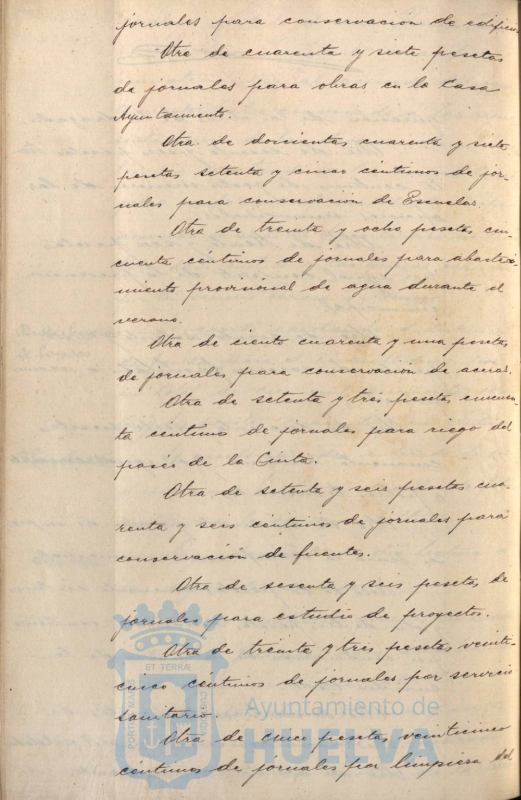 jornales para conservación de edificios
Otra de cuarenta y siete pesetas
de jornales para obras en la Casa
Ayuntamiento.
Otra de doscientas cuarenta y siete
pesetas setenta y cinco centimos de jor-
nales para conservación de Escuelas.
Otra de treinta y ocho pesetas cin-
cuenta centimos de jornales para abasteci-
miento provisional de agua durante el
verano.
Otra de ciento cuarenta y una pesetas
de jornales para conservación de aceras.
Otra de setenta y tres pesetas cincuen-
ta centimos de jornales para riego del
paseo de la Cinta.
Otra de setenta y seis pesetas cua-
renta y seis centimos de jornales para
conservación de fuentes.
Otra de sesenta y seis pesetas de
jornales para estudio de proyectos.
Otra de treinta y tres pesetas veinti-
cinco centimos de jornales por servicio
sanitario.
Otra de cinco pesetas veinticinco
centimos de jornales por limpieza del
PORTUS MARIS
ET TERRÆ
CUSTODIA
Ayuntamiento de
HUELVA